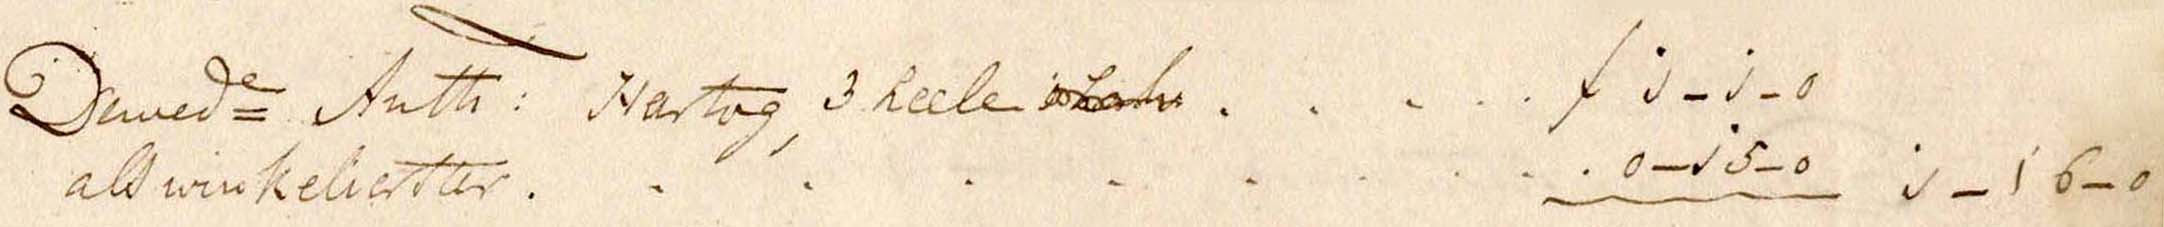 Dewed^e= Anth: Hartog, 3 heele . . . . . f 1-1-0
als winkelierster . . . . . . . . . . 0-15-0 1-16-0